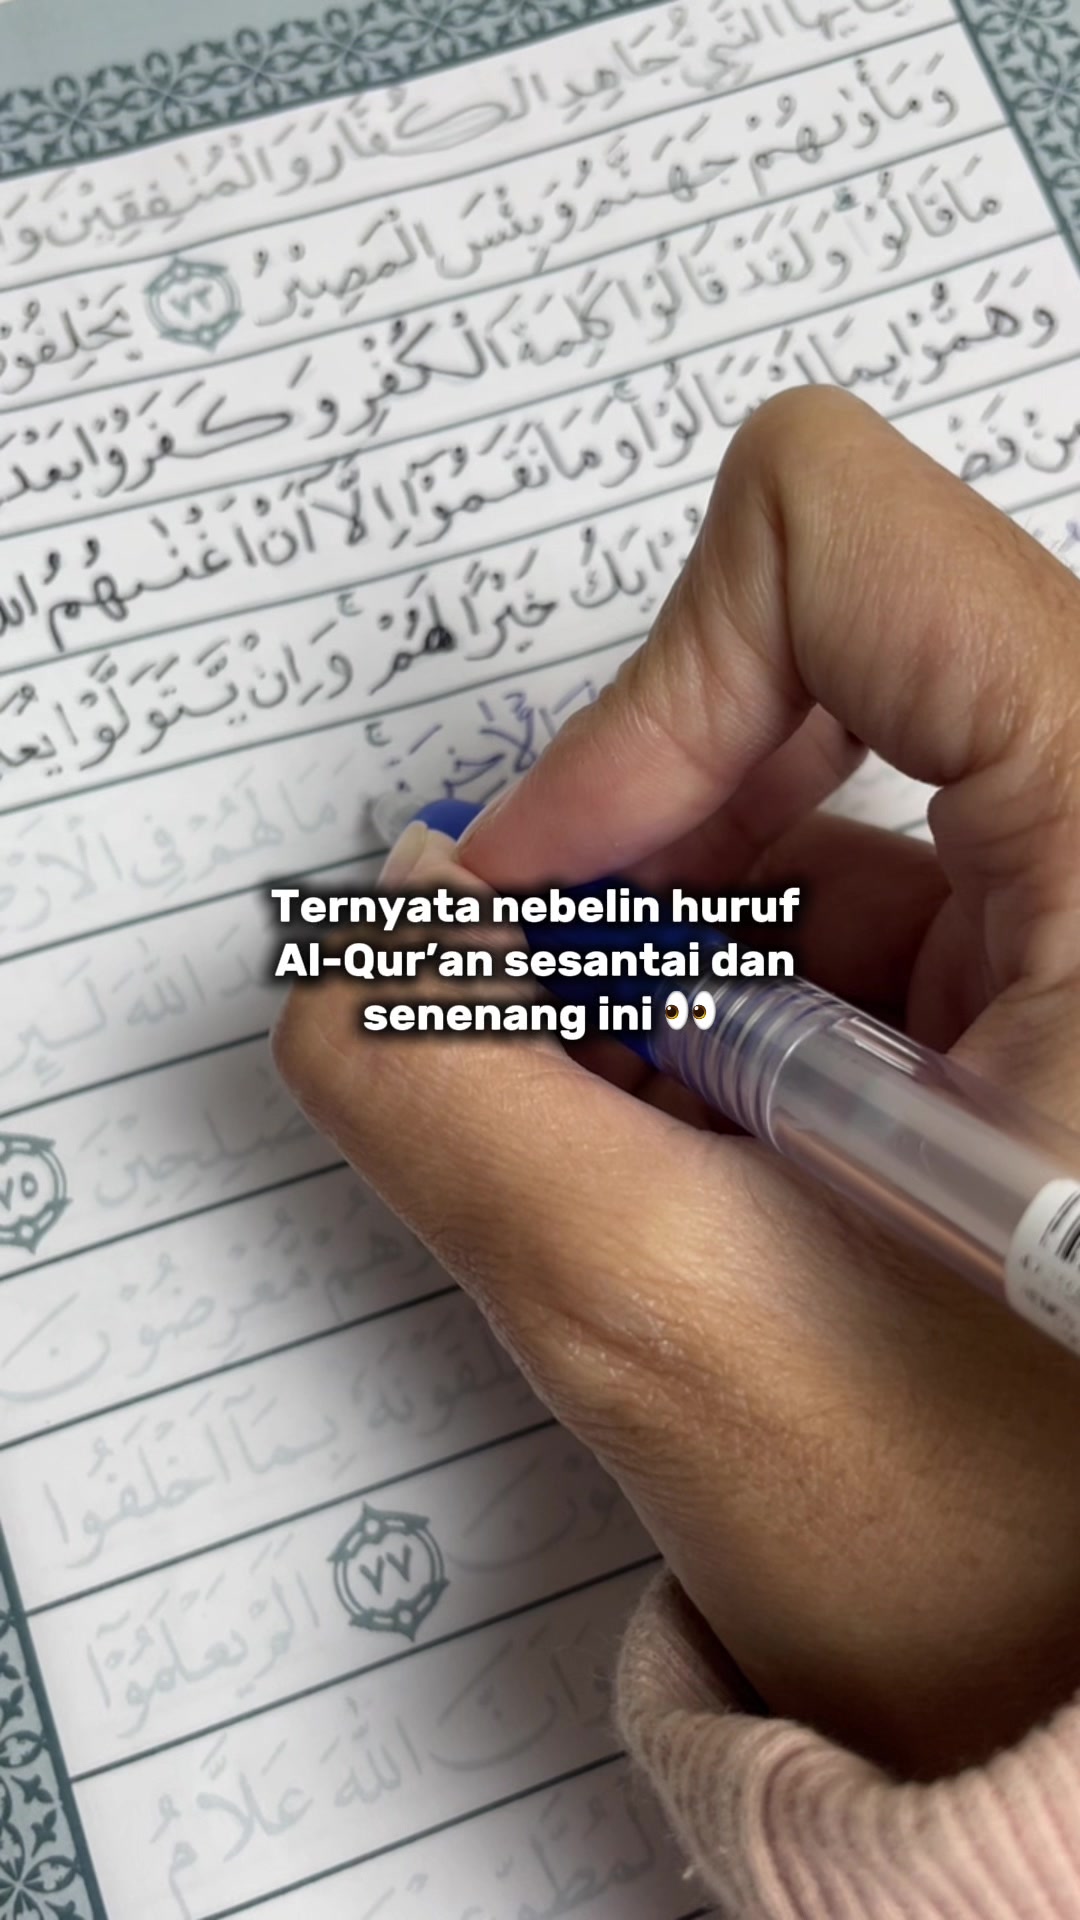 يَٰٓأَيُّهَا النَّبِيُّ جَاهِدِ الْكُفَّارَ وَالْمُنٰفِقِيْنَ
وَمَأْوٰىهُمْ جَهَنَّمُ وَبِئْسَ الْمَصِيْرُ ٧٣ يَحْلِفُوْ
مَا قَالُوْا وَلَقَدْ قَالُوْا كَلِمَةَ الْكُفْرِ وَكَفَرُوْا بَعْدَ
وَهَمُّوْا بِمَا لَمْ يَنَالُوْاۚ وَمَا نَقَمُوْٓا اِلَّآ اَنْ اَغْنٰىهُمُ
مِنْ فَضْ يَكُ خَيْرًا لَّهُمْۚ وَاِنْ يَّتَوَلَّوْا
الْاٰخِرَةِۚ مَا لَهُمْ فِى الْاَرْضِ
اللّٰهَ لَىِٕ
٧٥
هُمْ مُّعْرِضُوْنَ
يَلْقَوْنَهٗ بِمَآ اَخْلَفُوا
٧٧ اَلَمْ يَعْلَمُوْٓا
وَاَنَّ اللّٰهَ عَلَّامُ
Ternyata nebelin huruf
Al-Qur’an sesantai dan
senenang ini 👀